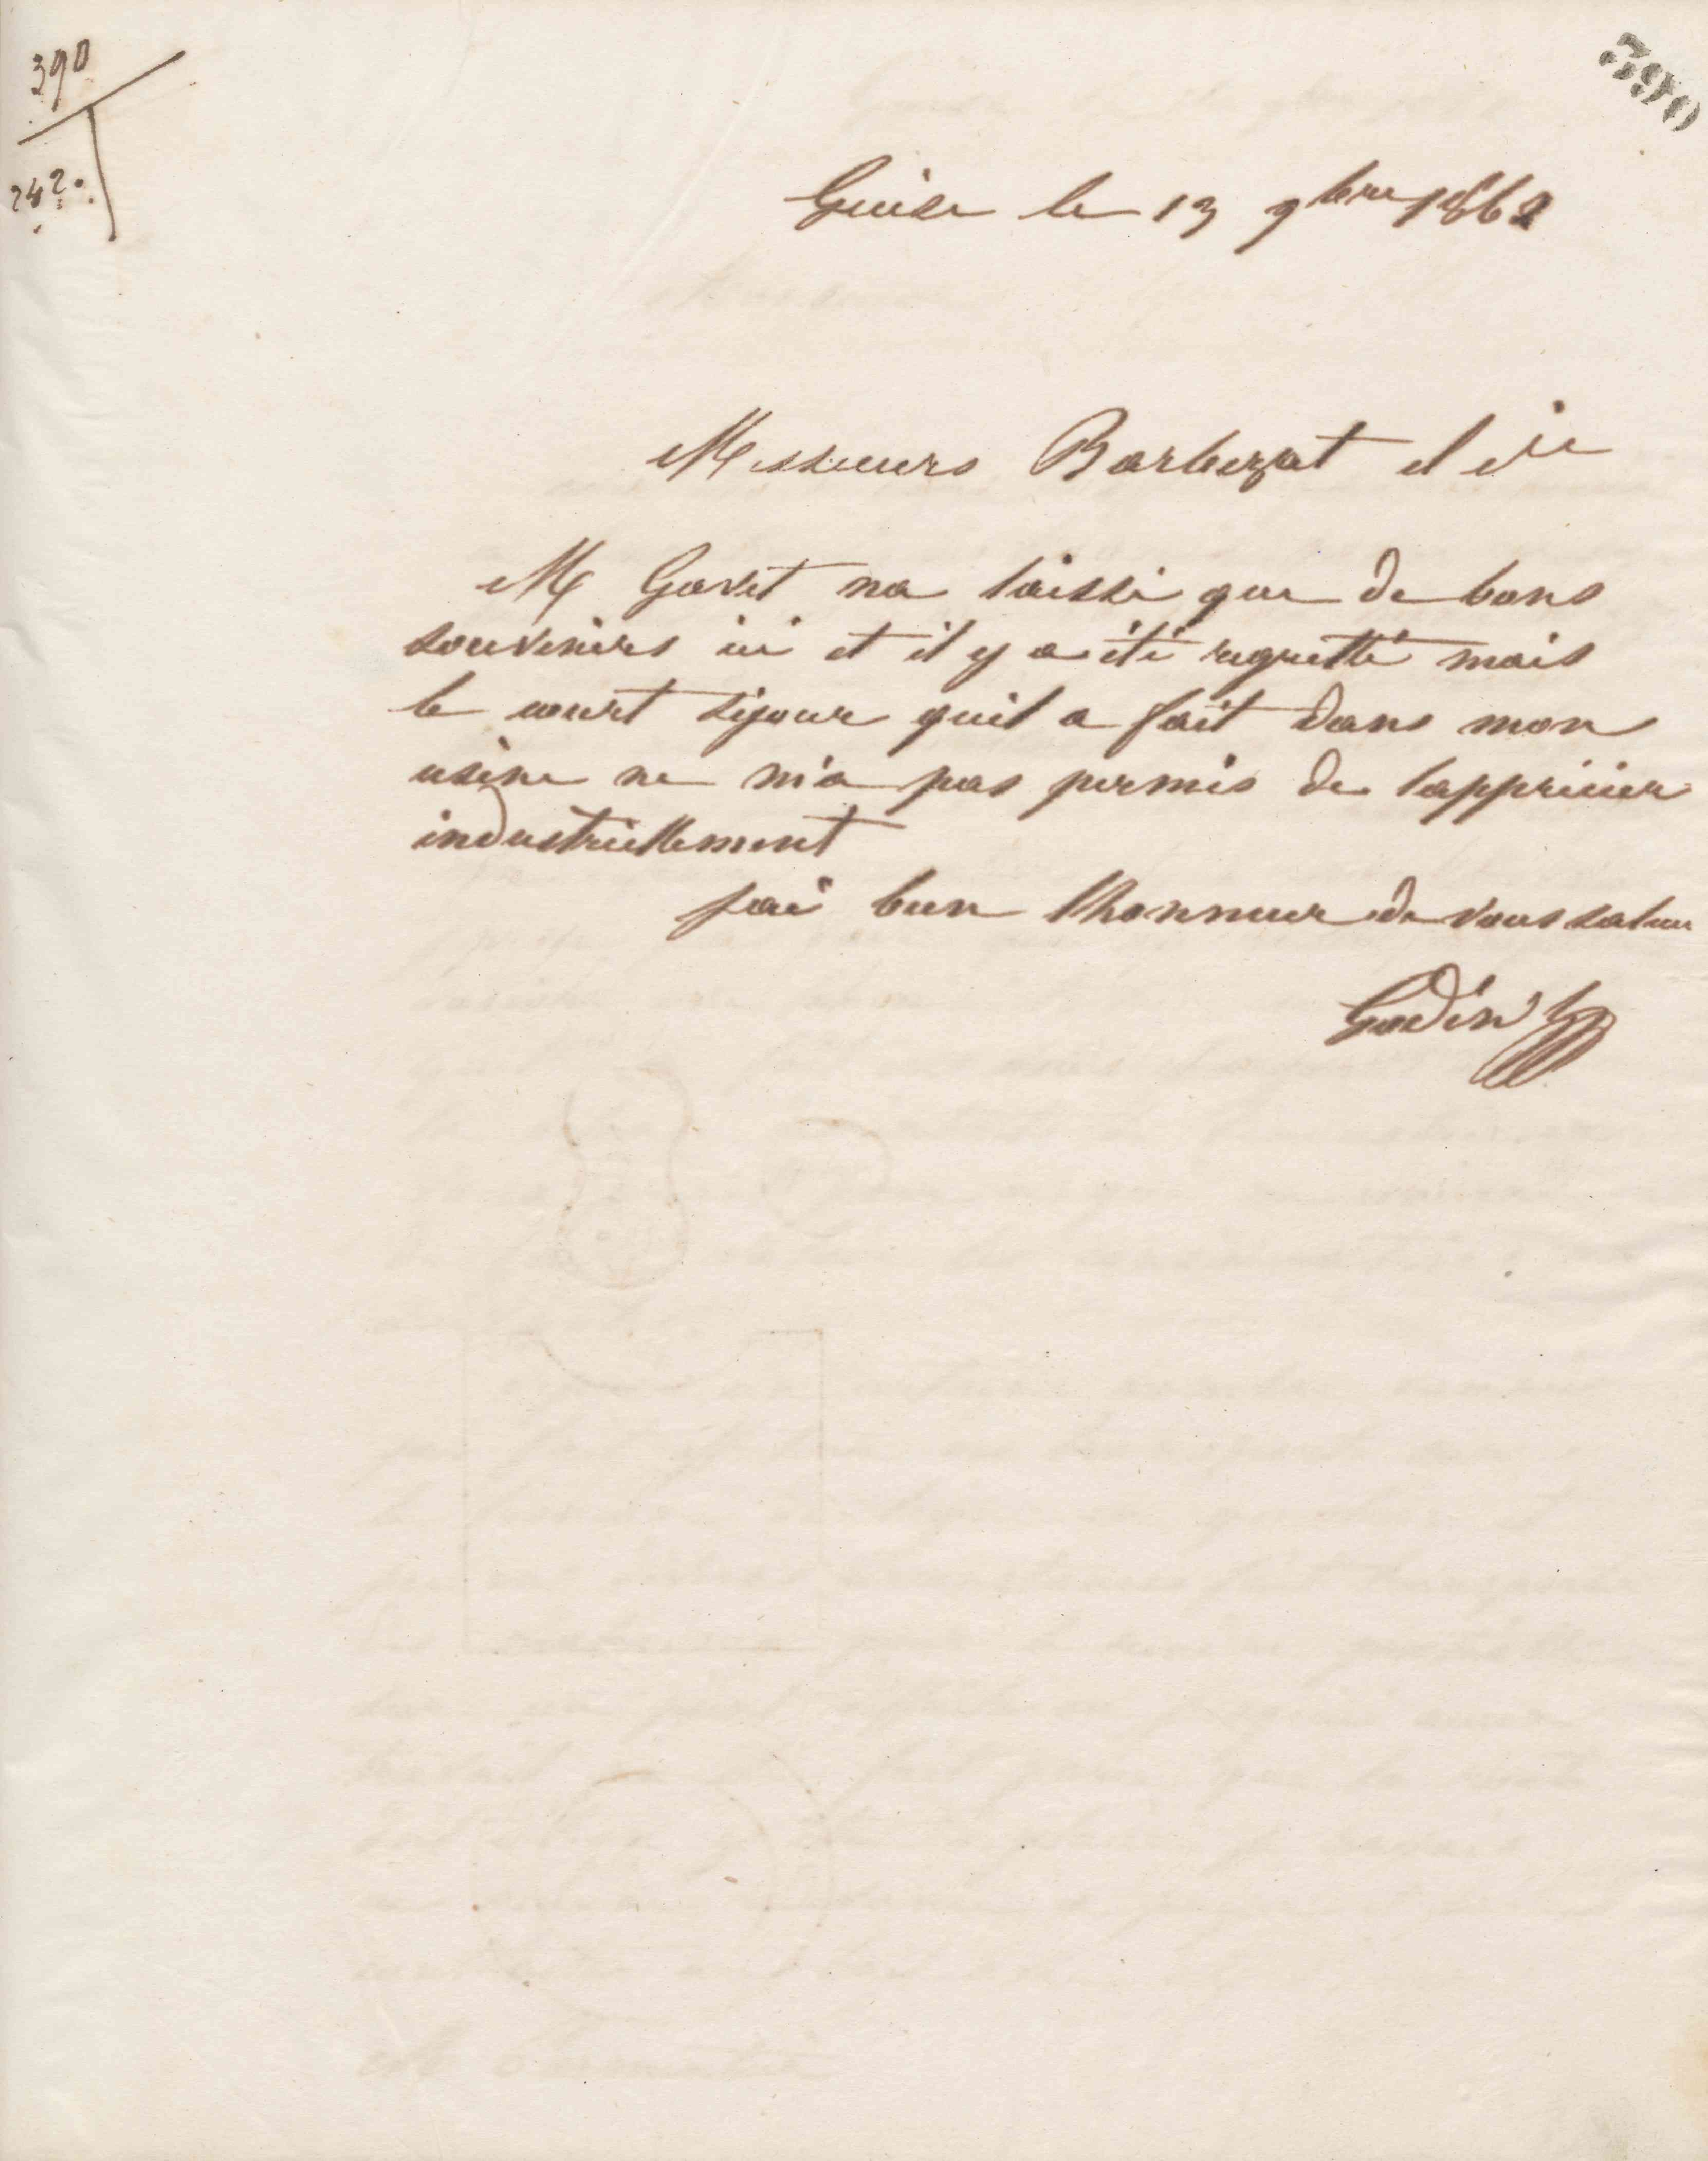 390
242.
390
Guise le 13 9bre 1862
Messieurs Barbezat et Cie
M Gavet na laissé que de bons
souvenirs ici et il y a été regretté mais
le court séjour quil a fait dans mon
usine ne m'a pas permis de lapprécier
industriellement
jai bien lhonneur de vous saluer
Godin